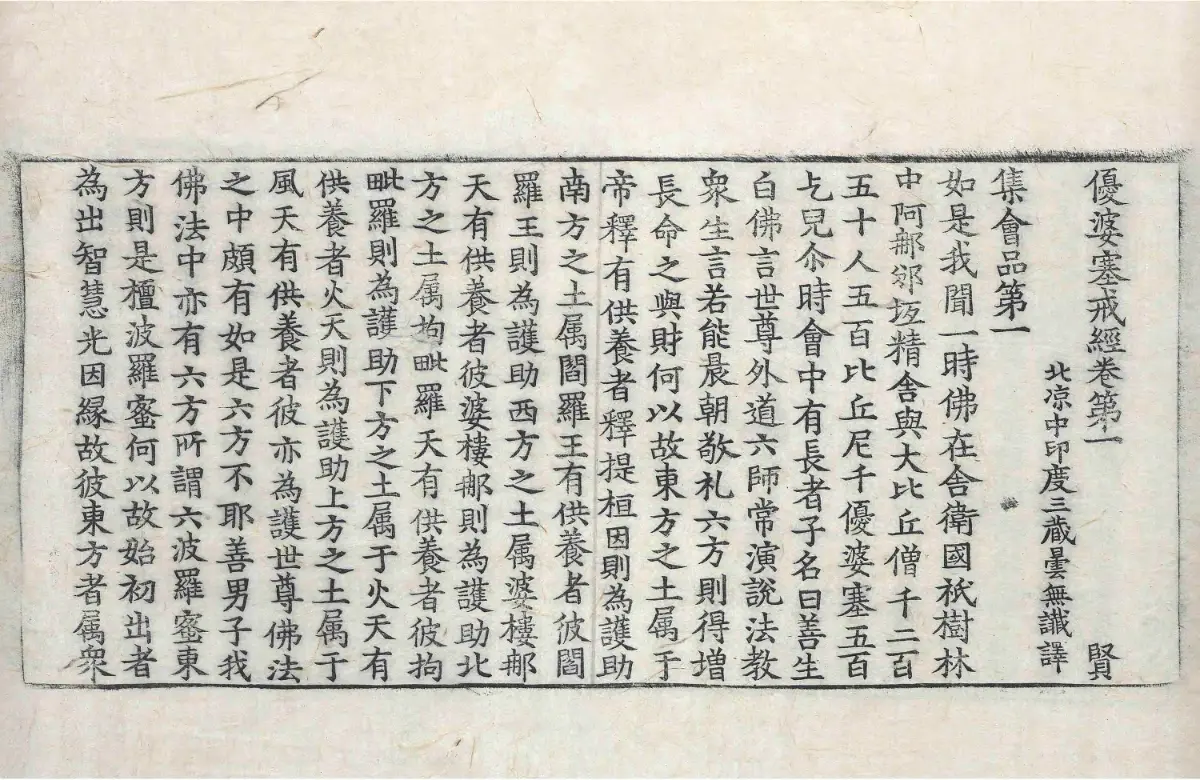 優婆塞戒經卷第一 賢
北凉中印度三藏曇無讖譯
集會品第一
如是我聞一時佛在舍衛國祇樹林
中阿那邠坻精舍與大比丘僧千二百
五十人五百比丘尼千優婆塞五百
乞兒尒時會中有長者子名曰善生
白佛言世尊外道六師常演說法教
衆生言若能晨朝敬札六方則得增
長命之與財何以故東方之土属于
帝釋有供養者釋提桓因則為護助
南方之土属閻羅王有供養者彼閻
羅王則為護助西方之土属婆樓那
天有供養者彼婆樓那則為護助北
方之土属拘毗羅天有供養者彼拘
毗羅則為護助下方之土属于火天有
供養者火天則為護助上方之土属于
風天有供養者彼亦為護世尊佛法
之中頗有如是六方不耶善男子我
佛法中亦有六方所謂六波羅蜜東
方則是檀波羅蜜何以故始初出者
為出智慧光因緣故彼東方者属衆